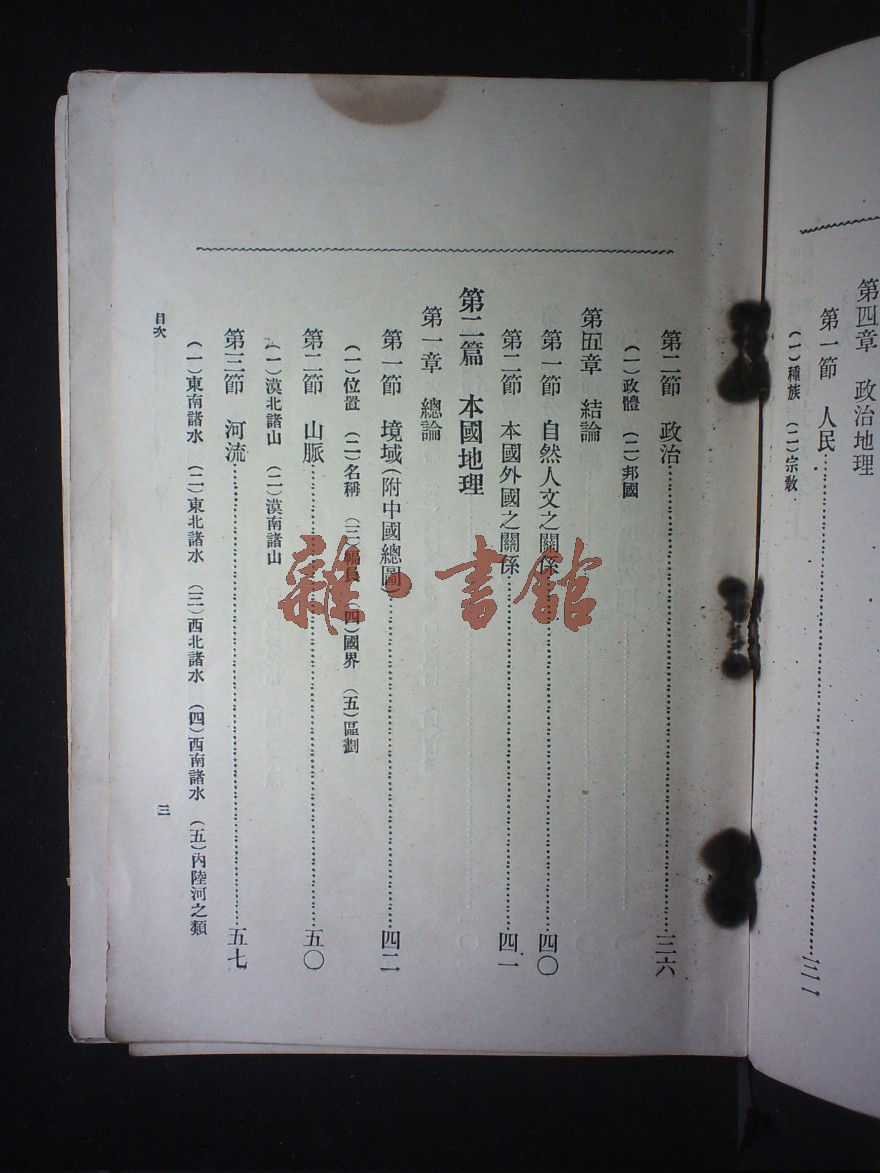 第四章　政治地理
第一節　人民……三一
（一）種族　（二）宗教
第二節　政治……三六
（一）政體　（二）邦國
第五章　結論
第一節　自然人文之關係……四〇
第二節　本國外國之關係……四一
第二篇　本國地理
第一章　總論
第一節　境域（附中國總圖）……四二
（一）位置　（二）名稱　（三）幅員　（四）國界　（五）區劃
第二節　山脈……五〇
（一）漠北諸山　（二）漠南諸山
第三節　河流……五七
（一）東南諸水　（二）東北諸水　（三）西北諸水　（四）西南諸水　（五）內陸河之類
目次　三
雜·書館